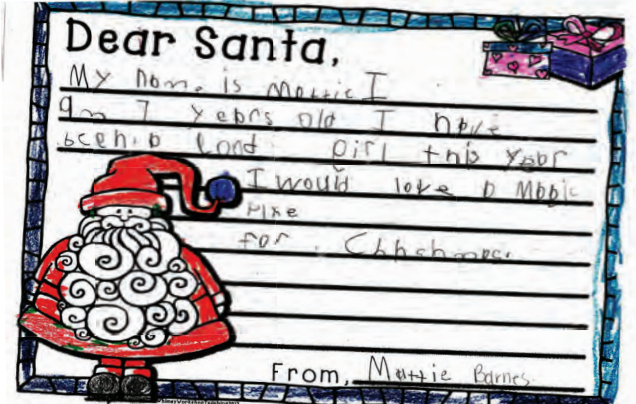 Dear Santa,
My name is Mattie I
am 7 years old I have
been a good girl this year
I would love a Magic
for
From, Mattie Barnes